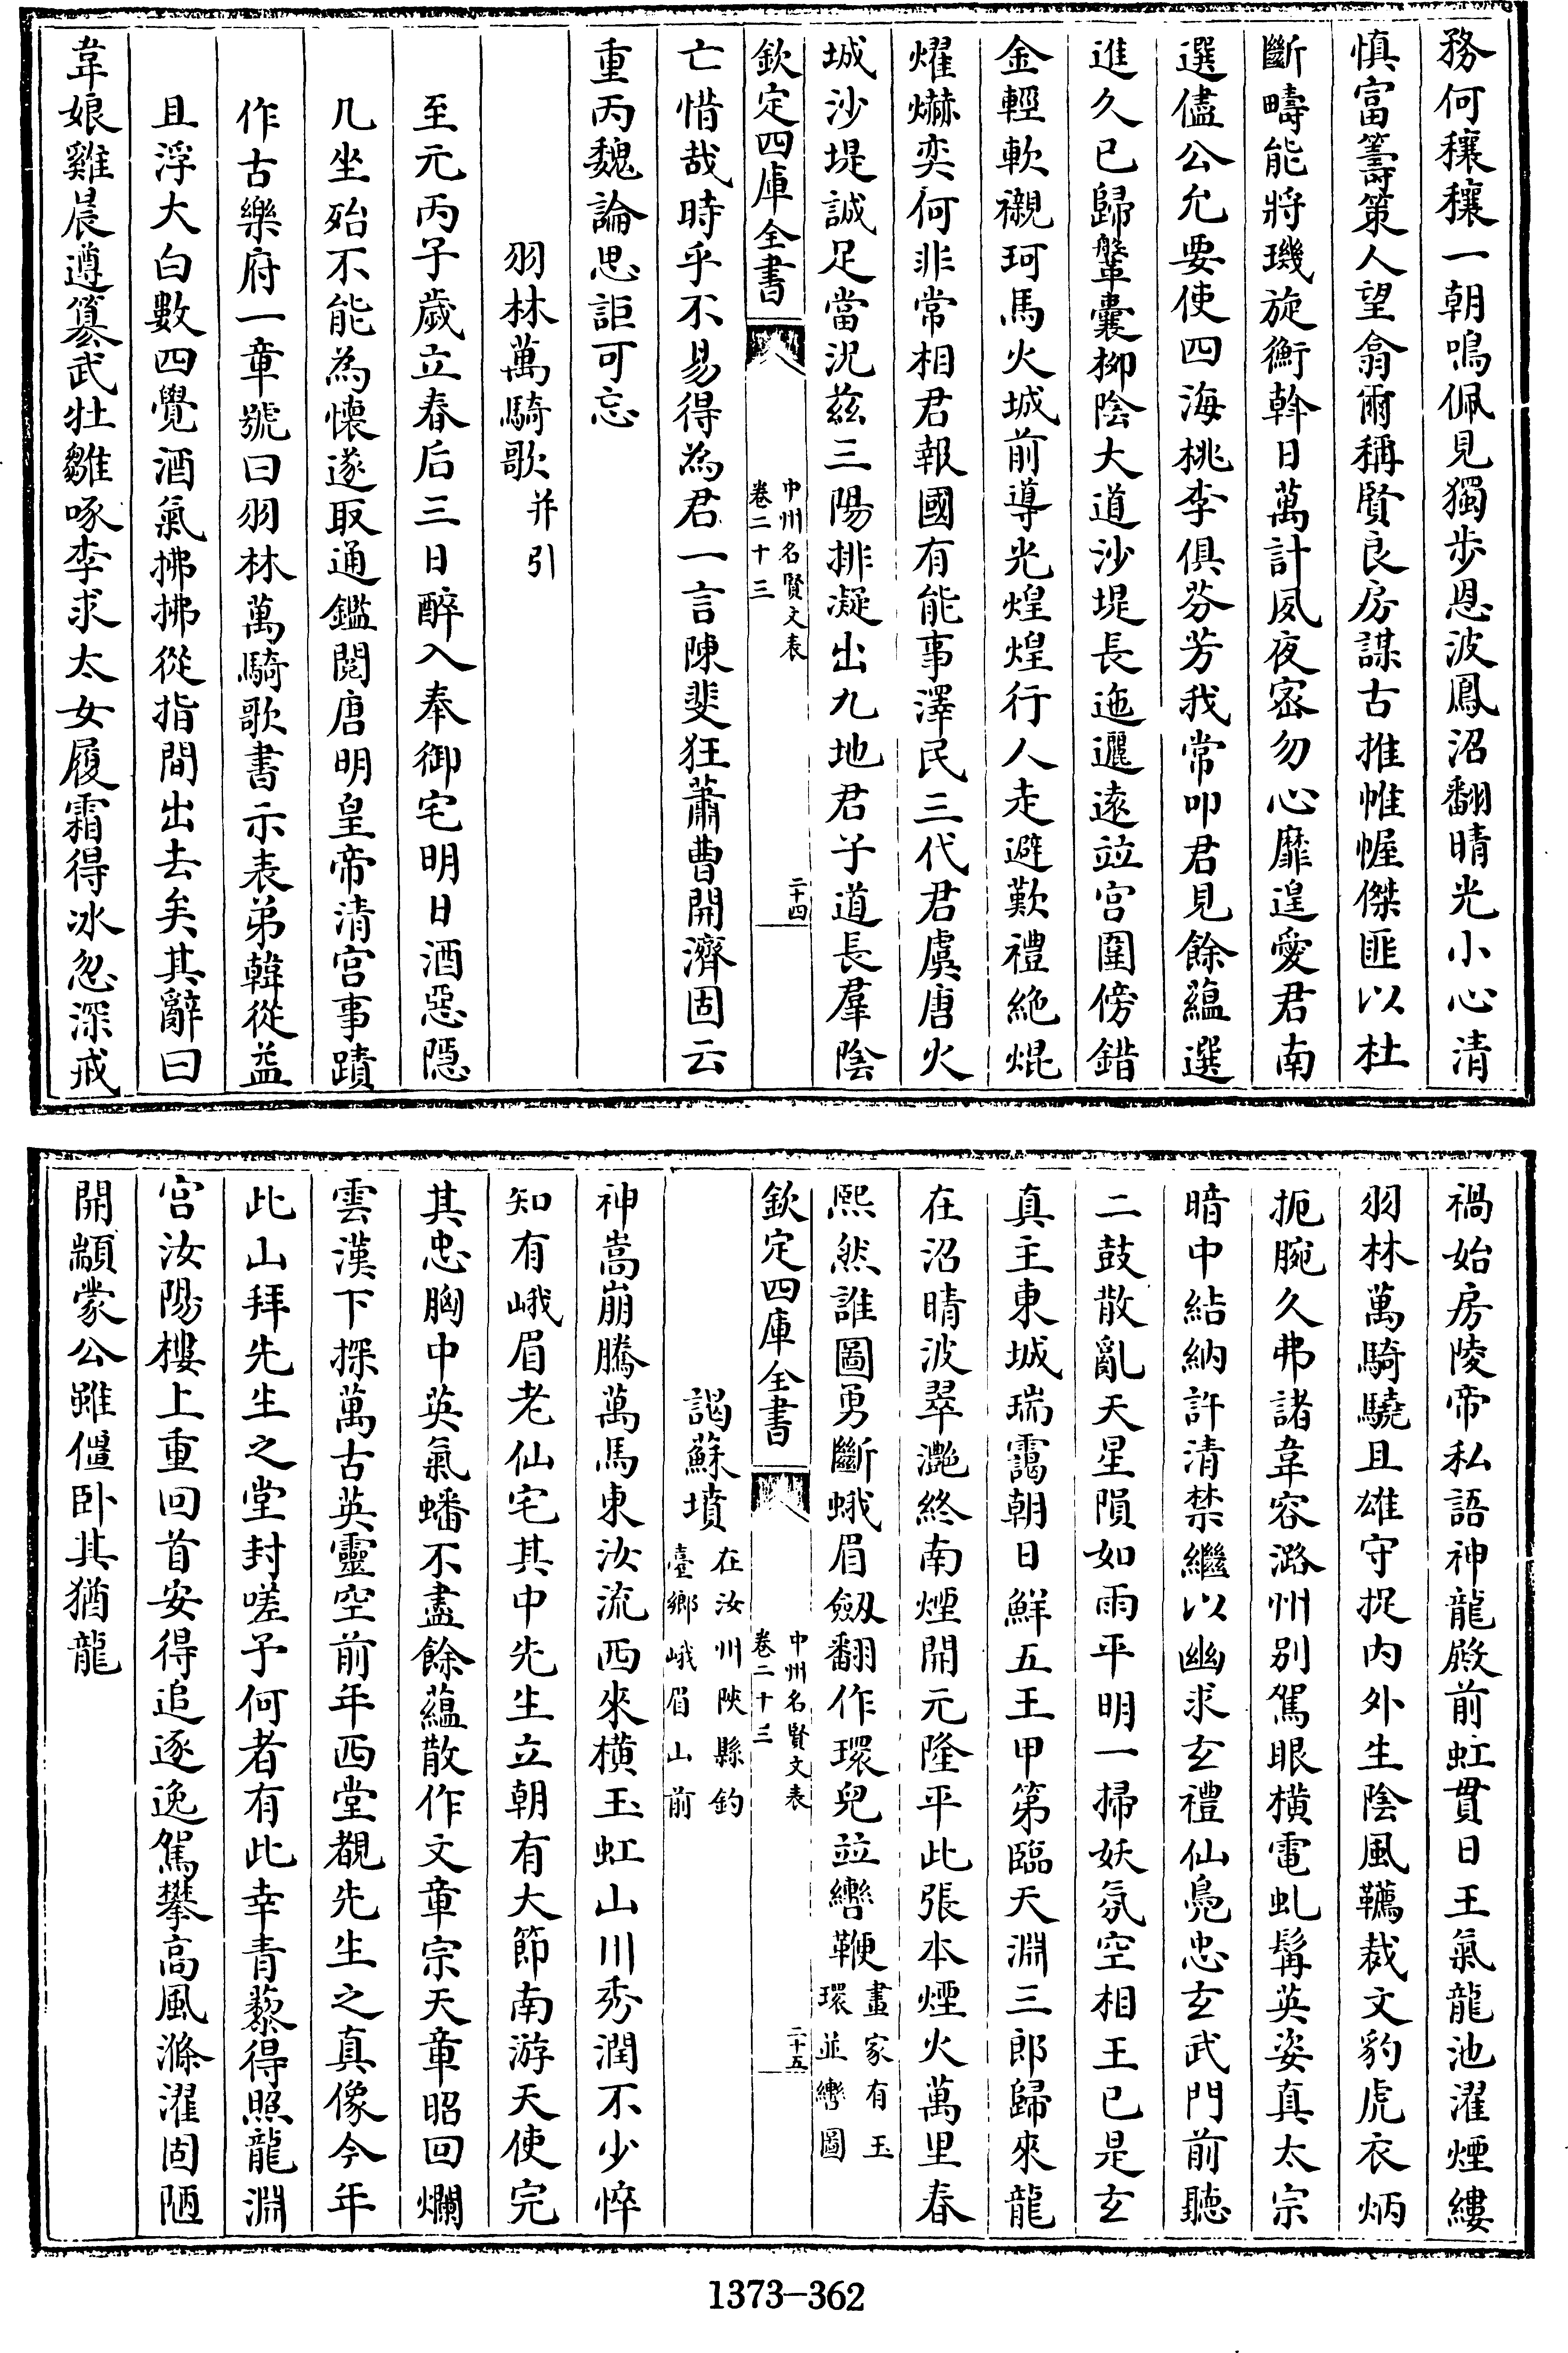 務何穰穰一朝鳴佩見獨步恩波鳳沼翻晴光小心清
慎富籌策人望翕爾稱賢良房謀古推帷幄傑匪以杜
斷疇能將璣旋衡斡日萬計夙夜宻勿心靡遑愛君南
選儘公允要使四海桃李俱芬芳我常叩君見餘藴選
進久已歸鞶囊柳陰大道沙堤長迤邐逺竝宫圍傍錯
金輕軟襯珂馬火城前導光煌煌行人走避歎禮絶焜
燿爀奕何非常相君報國有能事澤民三代君虞唐火
城沙堤誠足當況兹三陽排凝出九地君子道長羣陰
欽定四庫全書
中州名賢文表
卷二十三
二十四
亡惜哉時乎不易得為君一言陳斐狂蕭曹開濟固云
重丙魏論思詎可忘
羽林萬騎歌并引
至元丙子歳立春后三日醉入奉御宅明日酒惡隱
几坐殆不能為懐遂取通鑑閲唐明皇帝清宫事蹟
作古樂府一章號曰羽林萬騎歌書示表弟韓從益
且浮大白數四覺酒氣拂拂從指間出去矣其辭曰
韋娘雞晨遵簒武牡雛啄李求太女履霜得冰忽深戒
禍始房陵帝私語神龍殿前虹貫日王氣龍池濯煙縷
羽林萬騎驍且雄守捉内外生陰風韉裁文豹虎衣炳
扼腕久弗諸韋容潞州别駕眼横電虬髯英姿真太宗
暗中結納許清禁繼以幽求玄禮仙鳬忠玄武門前聽
二鼓散亂天星隕如雨平明一掃妖氛空相王已是玄
真主東城瑞靄朝日鮮五王甲第臨天淵三郎歸來龍
在沼晴波翠灔終南煙開元隆平此張本煙火萬里春
熙然誰圖勇斷蛾眉劔翻作環兒竝轡鞭畫家有玉環並轡圖
欽定四庫全書
中州名賢文表
卷二十三
二十五
謁蘇墳在汝州郟縣釣臺鄉峨眉山前
神嵩崩騰萬馬東汝流西來横玉虹山川秀潤不少悴
知有峨眉老仙宅其中先生立朝有大節南游天使完
其忠胸中英氣蟠不盡餘藴散作文章宗天章昭回爛
雲漢下探萬古英靈空前年西堂覩先生之真像今年
此山拜先生之堂封嗟予何者有此幸青藜得照龍淵
宫汝陽樓上重回首安得追逐逸駕攀高風滌濯固陋
開顓蒙公雖僵卧其猶龍
1373-362